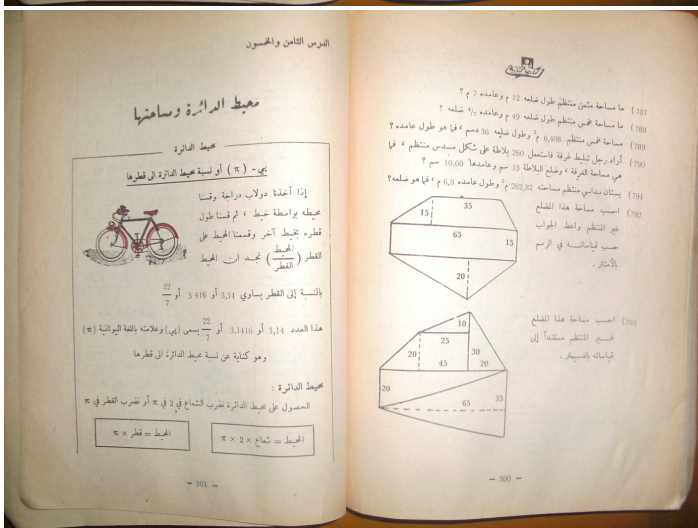 787) ما مساحة مثمن منتظم طول ضلعه 12 م وعامده 7 م ؟
788) ما مساحة مخمس منتظم طول ضلعه 49 م وعامده ضلعه ؟
789) مساحة مخمس منتظم 6,408 م² وطول ضلعه 36 دسم ، فما هو طول عامده ؟
790) أراد رجل تبليط غرفة فاستعمل 260 بلاطة على شكل مسدس منتظم ، فما
هي مساحة الغرفة ، وضلع البلاطة 13 سم وعامدها 10,60 سم ؟
791) بستان سداسي منتظم مساحته 262,82 م² وطول عامده 6,8 م ، فما هو ضلعه ؟
792) احسب مساحة هذا المضلع
غير المنتظم واعط الجواب
حسب قياساته في الرسم
بالأمتار .
35
15
65
15
20
793) احسب مساحة هذا المضلع
غير المنتظم مستنداً إلى
قياساته بالدسيمتر .
10
25
20
30
45
20
20
65
35
- 300 -
الدرس الثامن والخمسون
محيط الدائرة ومساحتها
محيط الدائرة
بي - (π) أو نسبة محيط الدائرة الى قطرها
إذا أخذنا دولاب دراجة وقسنا
محيطه بواسطة خيط ، ثم قسنا طول
قطره بخيط آخر وقسمنا المحيط على
القطر (المحيط / القطر) نجد ان المحيط
بالنسبة إلى القطر يساوي 3,14 أو 3 416 أو 22/7
هذا العدد 3,14 أو 3,1416 أو 22/7 يسمى (بي) وعلامته باللغة اليونانية (π)
وهو كناية عن نسبة محيط الدائرة الى قطرها
محيط الدائرة :
للحصول على محيط الدائرة نضرب الشعاع في 2 في π أو نضرب القطر في π
المحيط = شعاع × 2 × π
المحيط = قطر × π
- 301 -